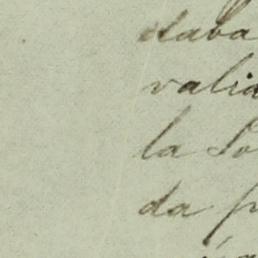 daba
valia
la So
da p